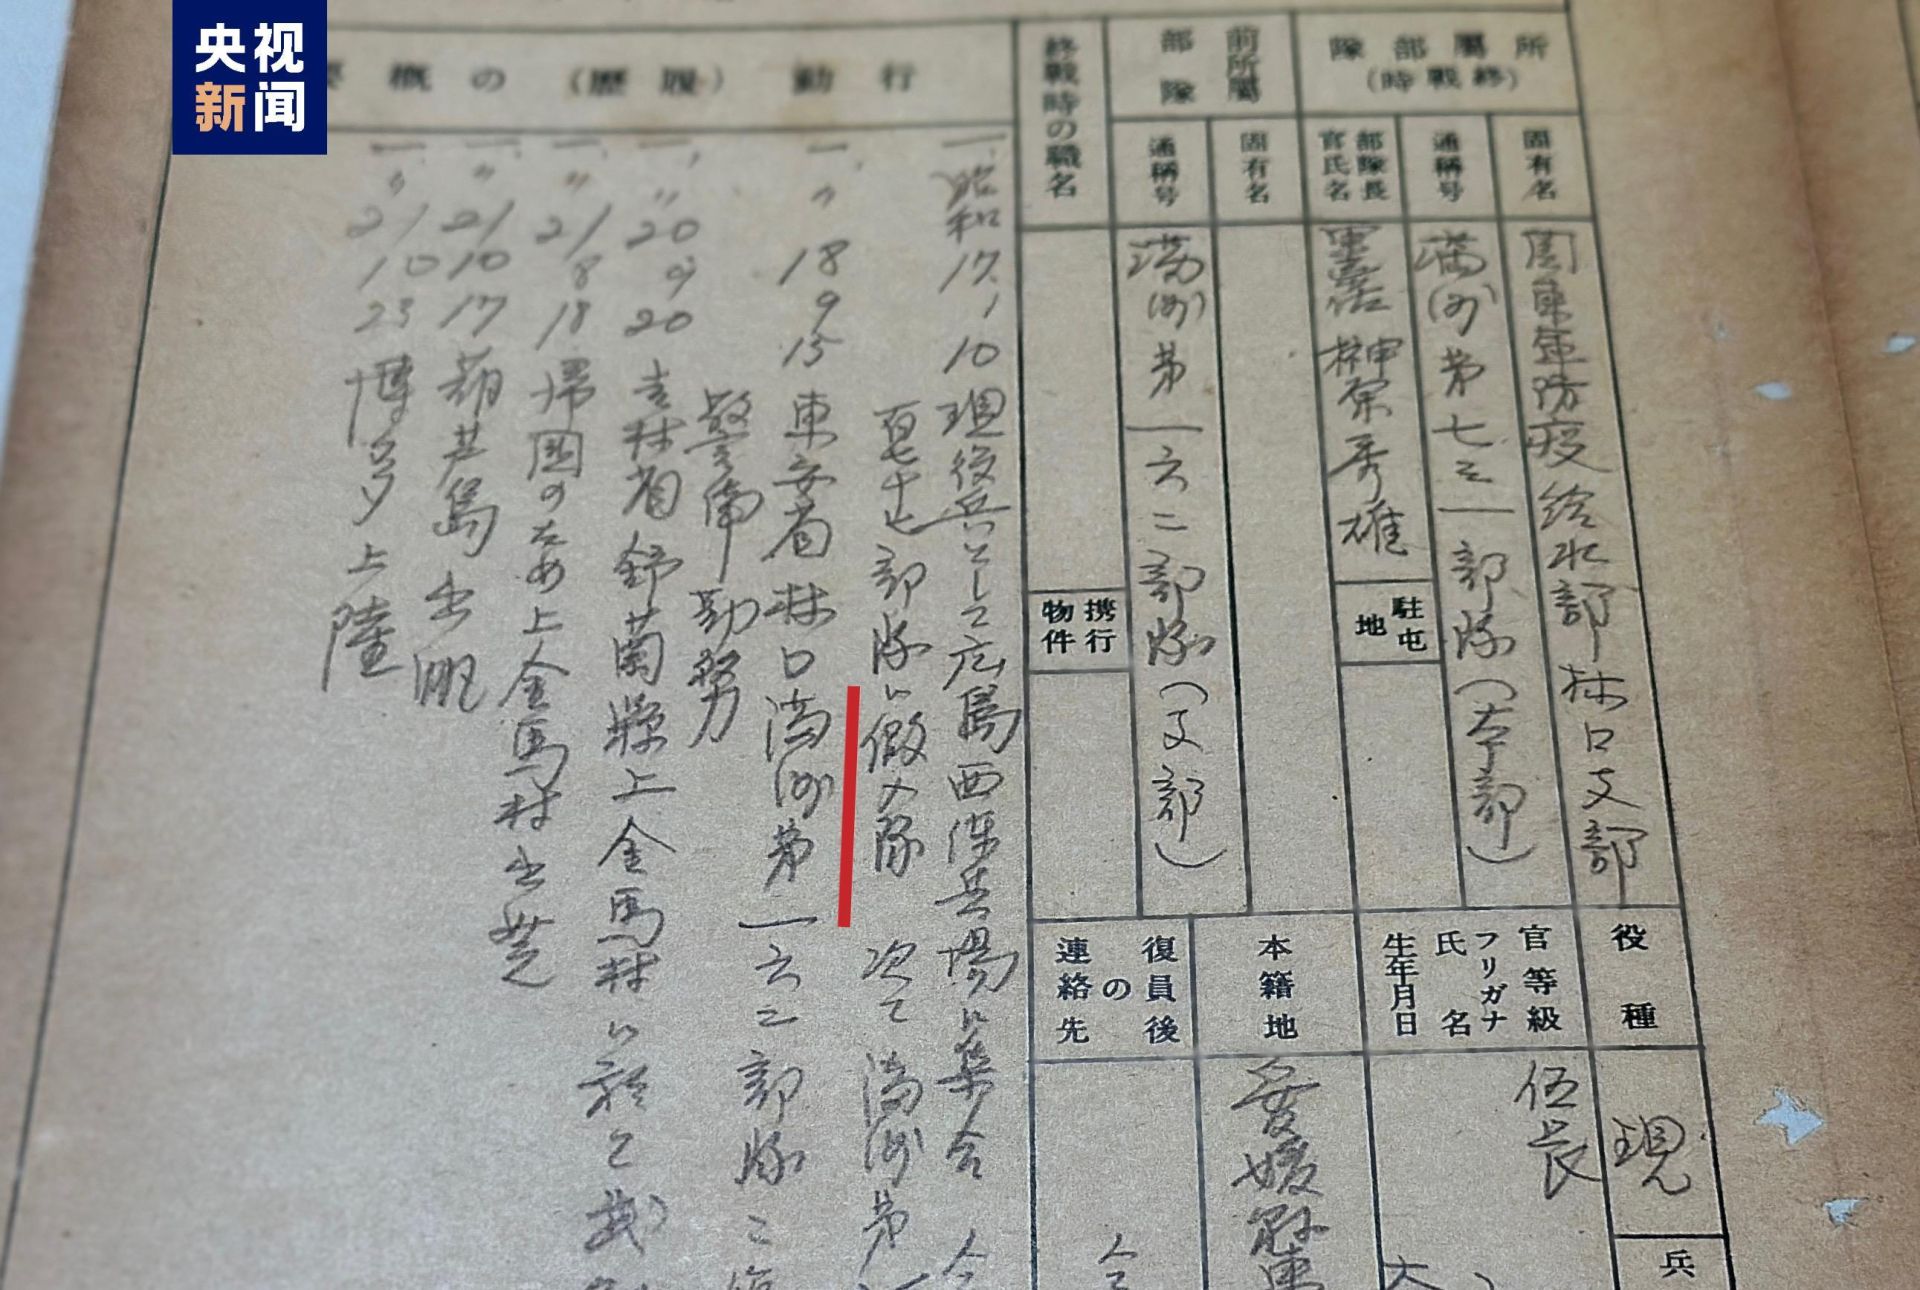 央视
新闻
所屬部隊
(終戰時)
固有名
関東軍防疫給水部林口支部
通稱号
満洲第七三一部隊(本部)
部隊長
官氏名
榊原秀雄
駐屯
地
前所屬
部隊
固有名
通稱号
満洲第一六二部隊(支部)
終戰時の職名
携行
物件
行動(履歴)の概要
一、昭和17、1、10 現役兵として広島西練兵場に集合
部隊に仮入隊 次で満洲第
一、〃18 9 15 東安省林口満洲第一六二部隊
警備勤務
一、〃20 9 20 吉林省舒蘭縣上金馬村に於て
一、〃21 8 18 帰国のため上金馬村出発
一、〃21 10 17 葫芦島出帆
一、〃21 10 23 博多上陸
役種
現
兵
官等級
フリガナ
氏名
生年月日
伍長
本籍地
愛媛縣
復員後
の
連絡先